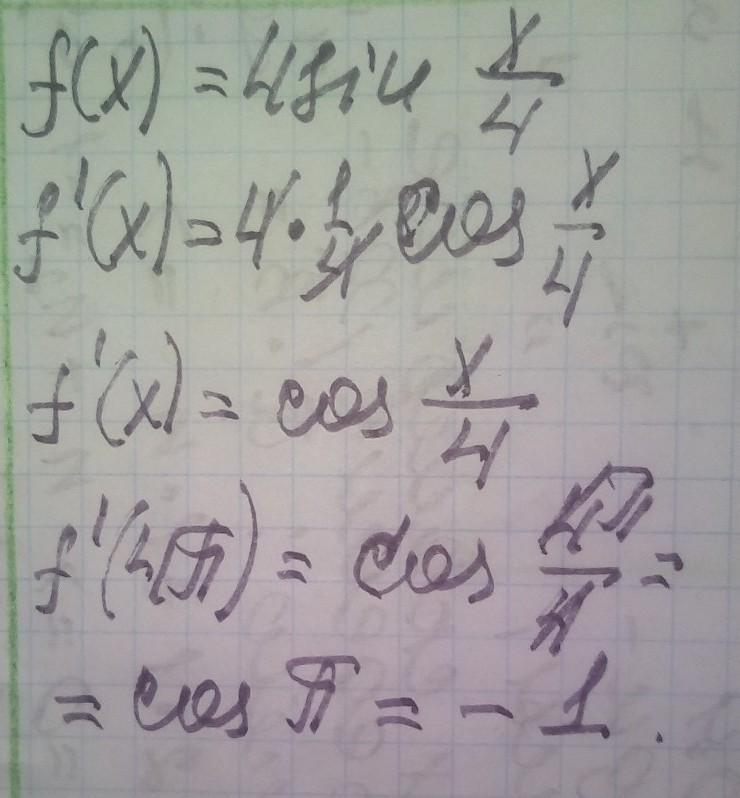 f(x) = 4 sin x/4
f'(x) = 4 · 1/4 cos x/4
f'(x) = cos x/4
f'(4π) = cos 4π/4 =
= cos π = - 1.